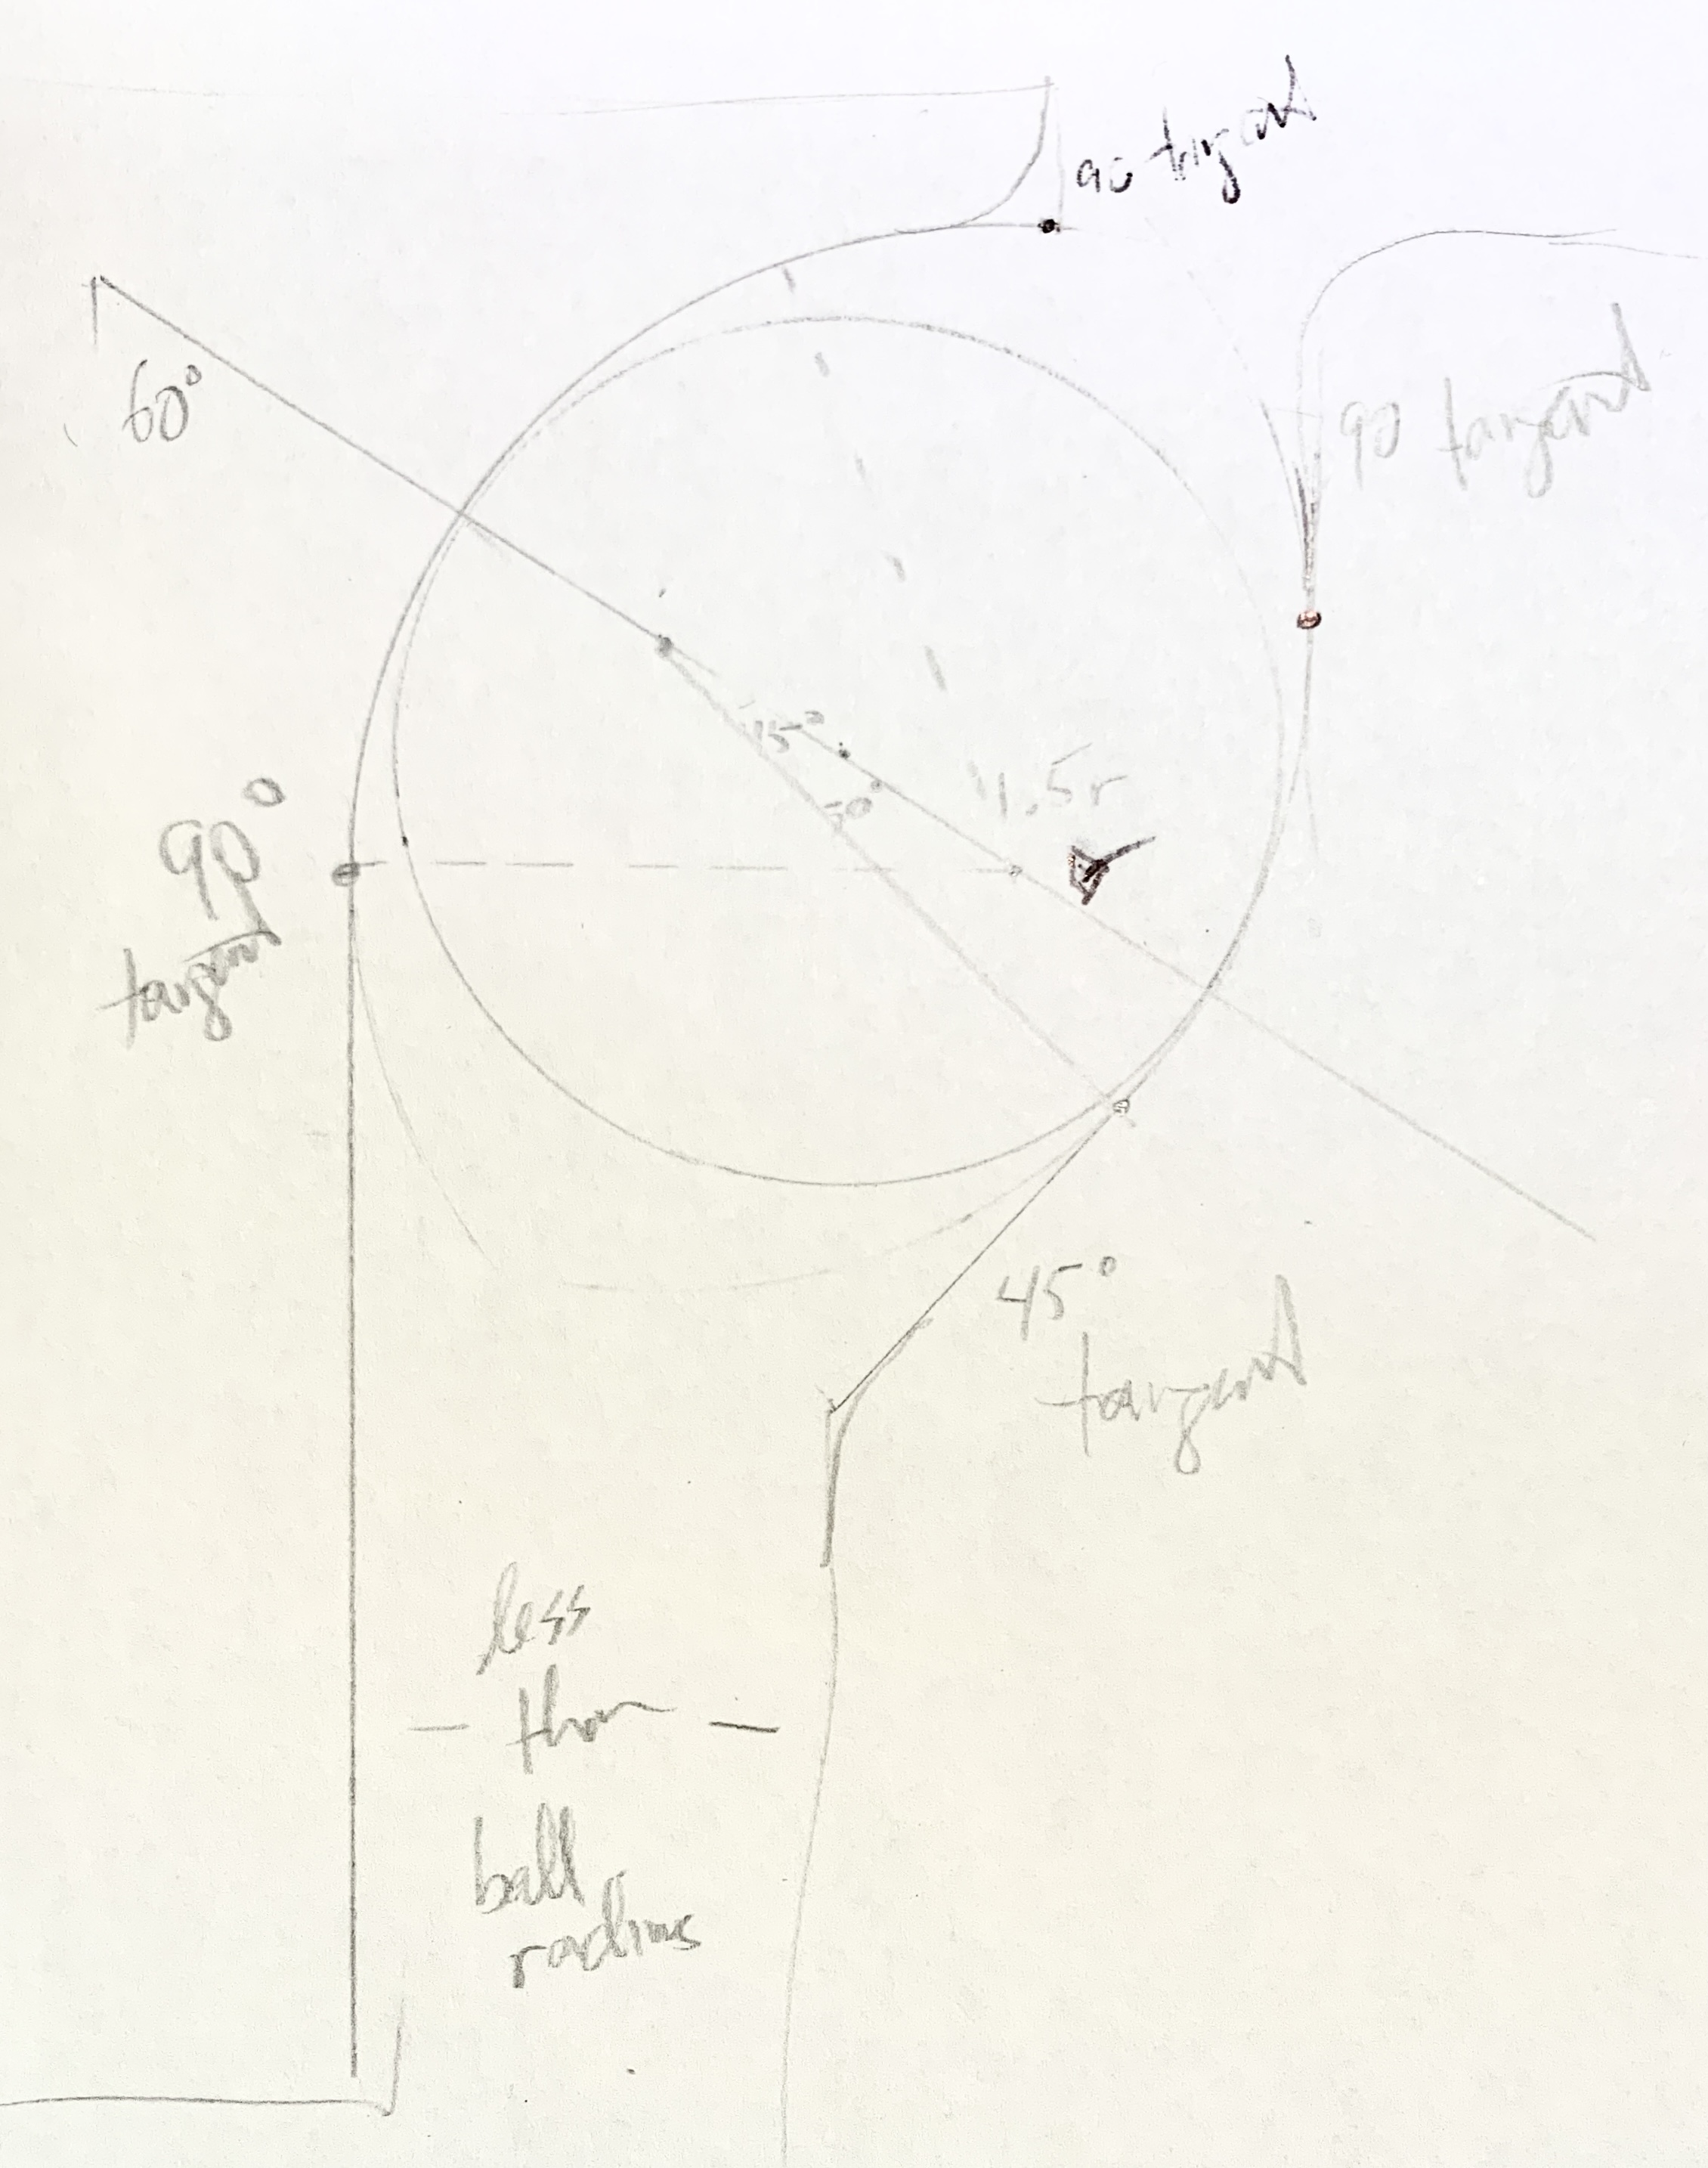 90 tangent
60°
90 tangent
45°
30°
1.5r
90°
tangent
45°
tangent
less
than
ball
radius